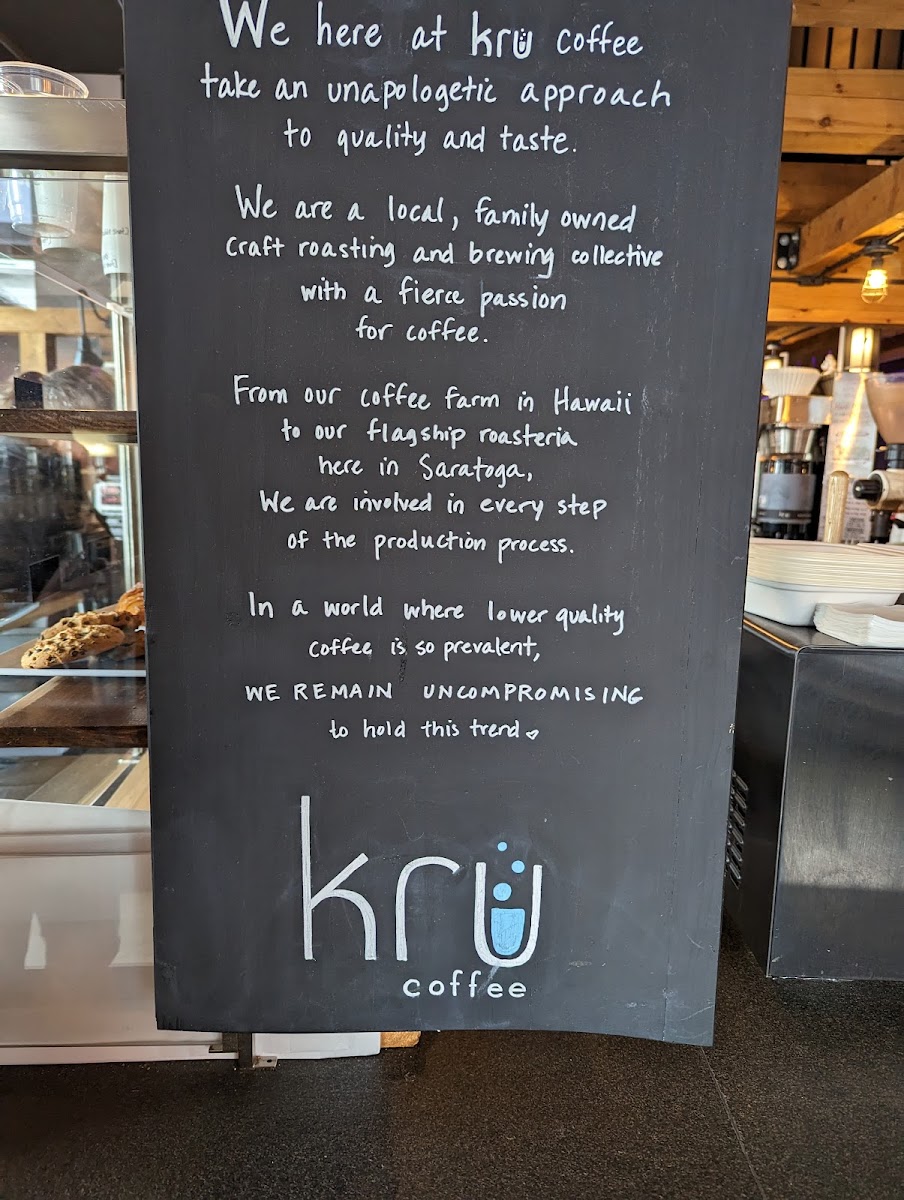 We here at krü coffee
take an unapologetic approach
to quality and taste.
We are a local, family owned
craft roasting and brewing collective
with a fierce passion
for coffee.
From our coffee farm in Hawaii
to our flagship roasteria
here in Saratoga,
We are involved in every step
of the production process.
In a world where lower quality
coffee is so prevalent,
WE REMAIN UNCOMPROMISING
to hold this trend
krü
coffee